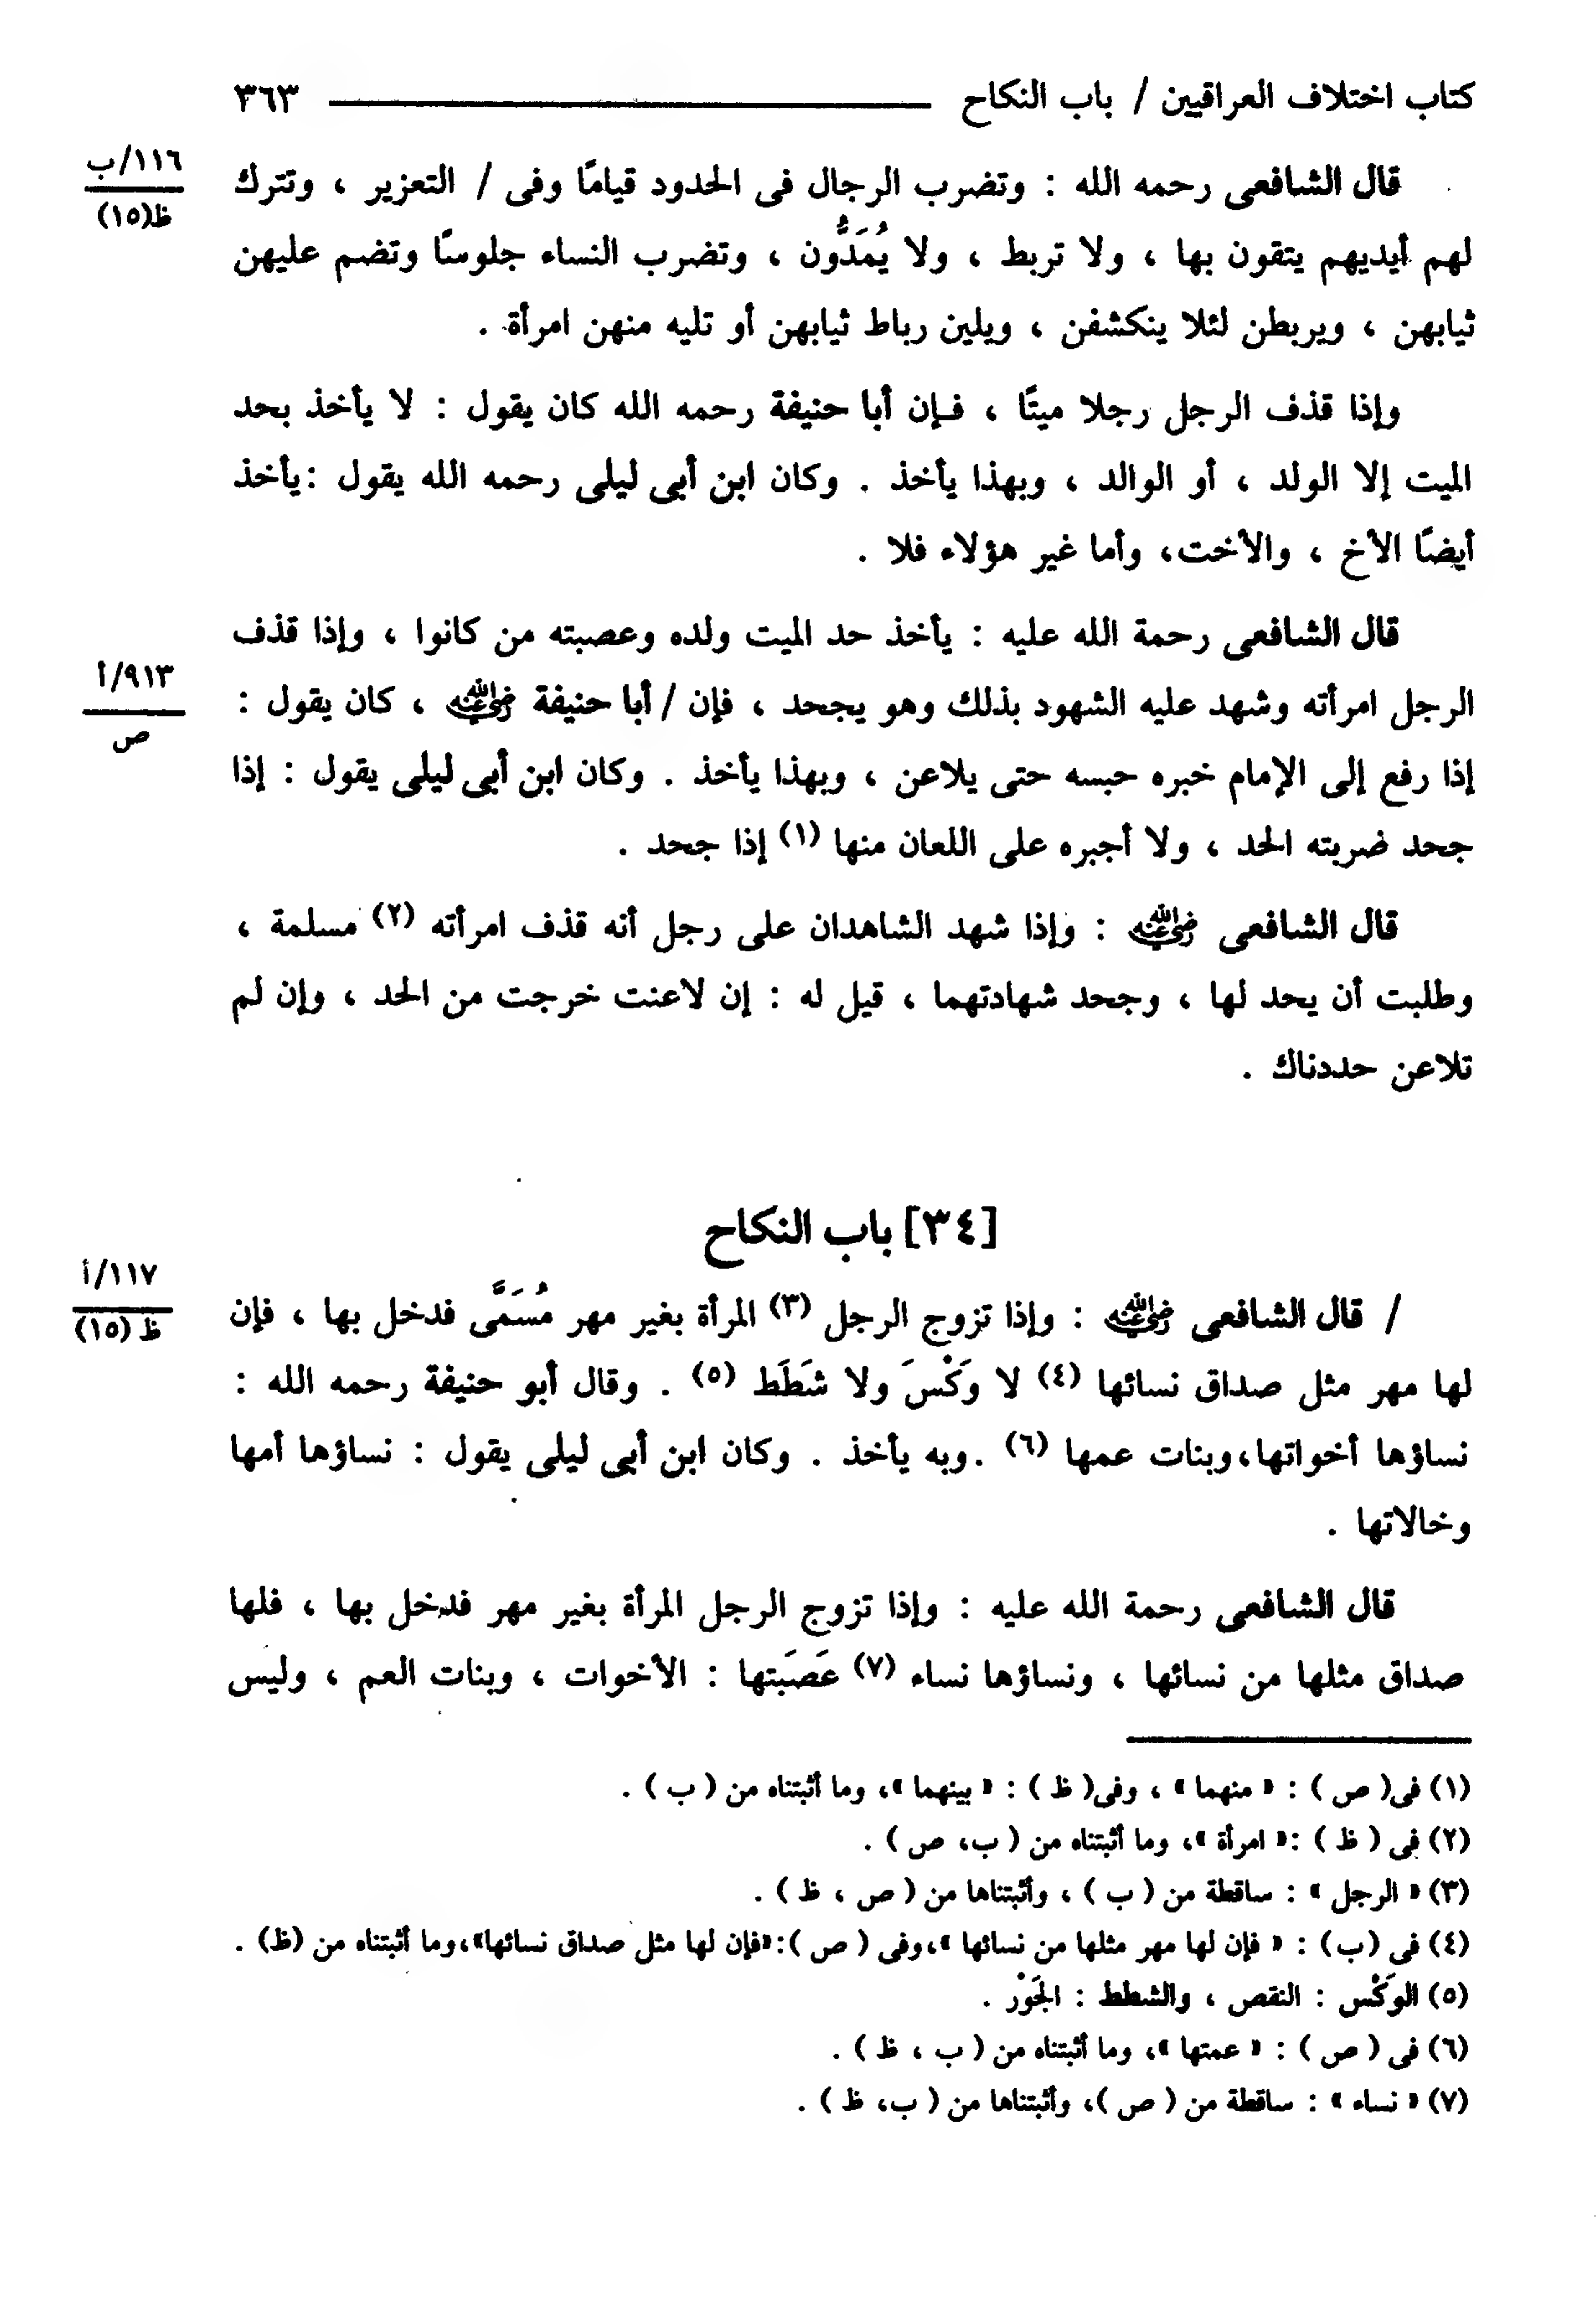 كتاب اختلاف العراقيين / باب النكاح ــــــــــــــــــــ ٣٦٣
١١٦/ب
ظ(١٥)
قال الشافعى رحمه الله : وتضرب الرجال فى الحدود قيامًا وفى / التعزير ، وتترك
لهم أيديهم يتقون بها ، ولا تربط ، ولا يُمَدُّون ، وتضرب النساء جلوسًا وتضم عليهن
ثيابهن ، ويربطن لئلا ينكشفن ، ويلين رباط ثيابهن أو تليه منهن امرأة .
وإذا قذف الرجل رجلا ميتًا ، فإن أبا حنيفة رحمه الله كان يقول : لا يأخذ بحد
الميت إلا الولد ، أو الوالد ، وبهذا يأخذ . وكان ابن أبى ليلى رحمه الله يقول :يأخذ
أيضًا الأخ ، والأخت، وأما غير هؤلاء فلا .
قال الشافعى رحمة الله عليه : يأخذ حد الميت ولده وعصبته من كانوا ، وإذا قذف
٩١٣/أ
ص
الرجل امرأته وشهد عليه الشهود بذلك وهو يجحد ، فإن / أبا حنيفة رضي الله عنه ، كان يقول :
إذا رفع إلى الإمام خبره حبسه حتى يلاعن ، وبهذا يأخذ . وكان ابن أبى ليلى يقول : إذا
جحد ضربته الحد ، ولا أجبره على اللعان منها (١) إذا جحد .
قال الشافعى رضي الله عنه : وإذا شهد الشاهدان على رجل أنه قذف امرأته (٢) مسلمة ،
وطلبت أن يحد لها ، وجحد شهادتهما ، قيل له : إن لاعنت خرجت من الحد ، وإن لم
تلاعن حددناك .
[٣٤] باب النكاح
١١٧/أ
ظ (١٥)
/ قال الشافعى رضي الله عنه : وإذا تزوج الرجل (٣) المرأة بغير مهر مُسَمًّى فدخل بها ، فإن
لها مهر مثل صداق نسائها (٤) لا وَكْسَ ولا شَطَط (٥) . وقال أبو حنيفة رحمه الله :
نساؤها أخواتها،وبنات عمها (٦) .وبه يأخذ . وكان ابن أبى ليلى يقول : نساؤها أمها
وخالاتها .
قال الشافعى رحمة الله عليه : وإذا تزوج الرجل المرأة بغير مهر فدخل بها ، فلها
صداق مثلها من نسائها ، ونساؤها نساء (٧) عَصَبتها : الأخوات ، وبنات العم ، وليس
(١) فى( ص ) : « منهما » ، وفى( ظ ) : « بينهما »، وما أثبتناه من ( ب ) .
(٢) فى ( ظ ) :« امرأة »، وما أثبتناه من ( ب، ص ) .
(٣) « الرجل » : ساقطة من ( ب ) ، وأثبتناها من ( ص ، ظ ) .
(٤) فى (ب) : « فإن لها مهر مثلها من نسائها »،وفى ( ص ):«فإن لها مثل صداق نسائها»،وما أثبتناه من (ظ) .
(٥) الوَكْس : النقص ، والشطط : الجَوْر .
(٦) فى ( ص ) : « عمتها »، وما أثبتناه من ( ب ، ظ ) .
(٧) « نساء » : ساقطة من ( ص )، وأثبتناها من ( ب، ظ ) .